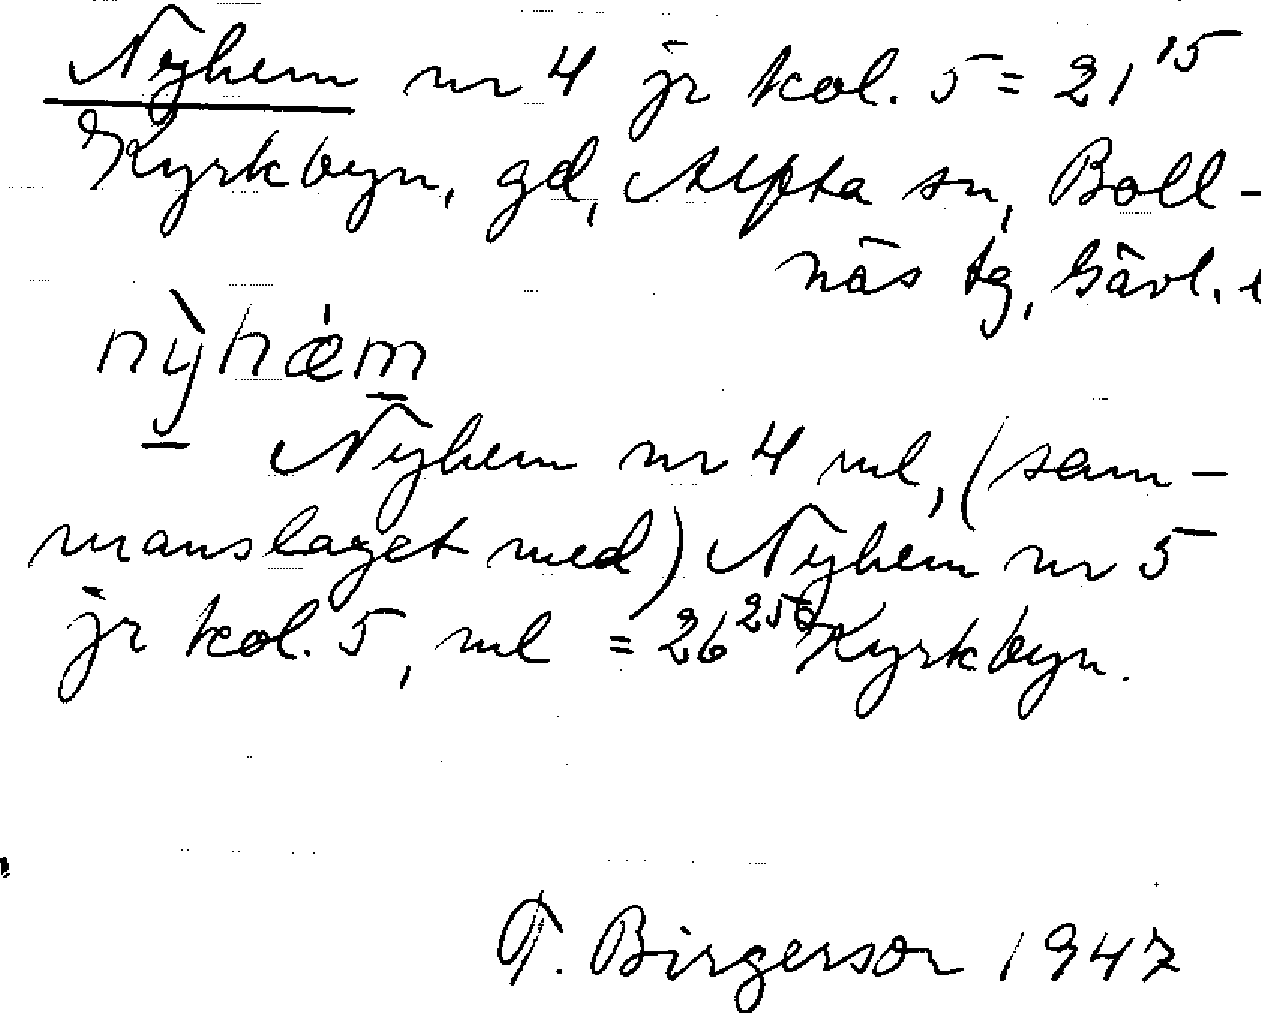 Nyhem nr 4 jr kol. 5 = 21¹⁵
Kyrkbyn, gd, Alfta sn, Boll-
näs tg, Gävl. l
nỳhæ̀m
Nyhem nr 4 ml, (sam-
manslaget med) Nyhem nr 5
jr kol. 5, ml = 26²⁵⁶ Kyrkbyn.
T. Birgerson 1947